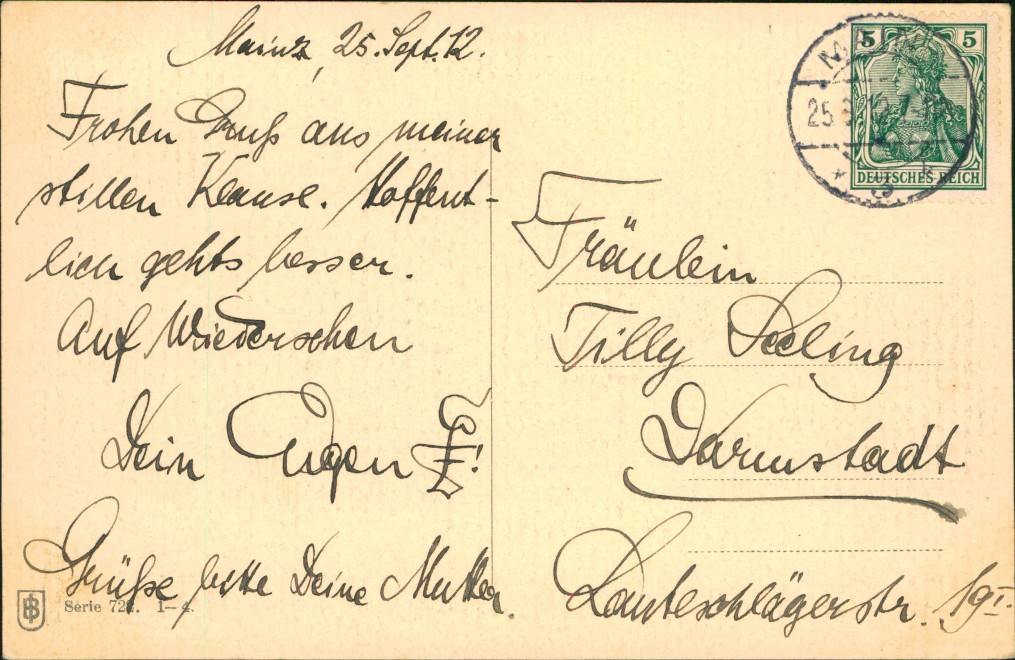 Mainz, 25. Sept. 12.
Frohen Gruß aus meiner
stillen Klause. Hoffent-
lich gehts besser.
Auf Wiedersehen
Dein Eugen
Grüße bitte Deine Mutter.
Serie 1-4.
5 5
MAINZ
25.9.12
DEUTSCHES REICH
Fräulein
Tilly Seeling
Darmstadt
Lauteschlägerstr. 19 I.